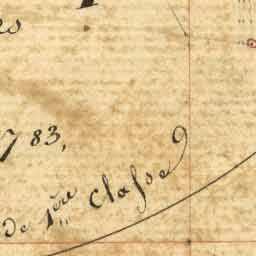 783,
de 1ère Classe